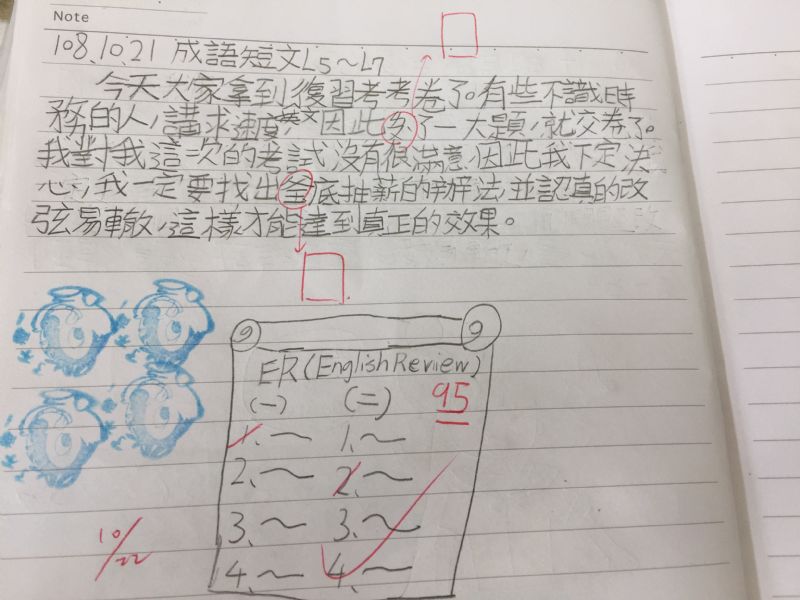 Note
108.10.21 成語短文L5～L7
今天大家拿到復習考考卷了。有些不識時
務的人，講求速度，英文因此多了一大題，就交券了。
我對我這一次的考試沒有很滿意，因此我下定決
心，我一定要找出釜底抽薪的辦法，並認真的改
弦易轍，這樣才能達到真正的效果。
ER(English Review)
(一) (二) 95
1.～ 1.～
2.～ 2.～
3.～ 3.～
4.～ 4.～
10/22